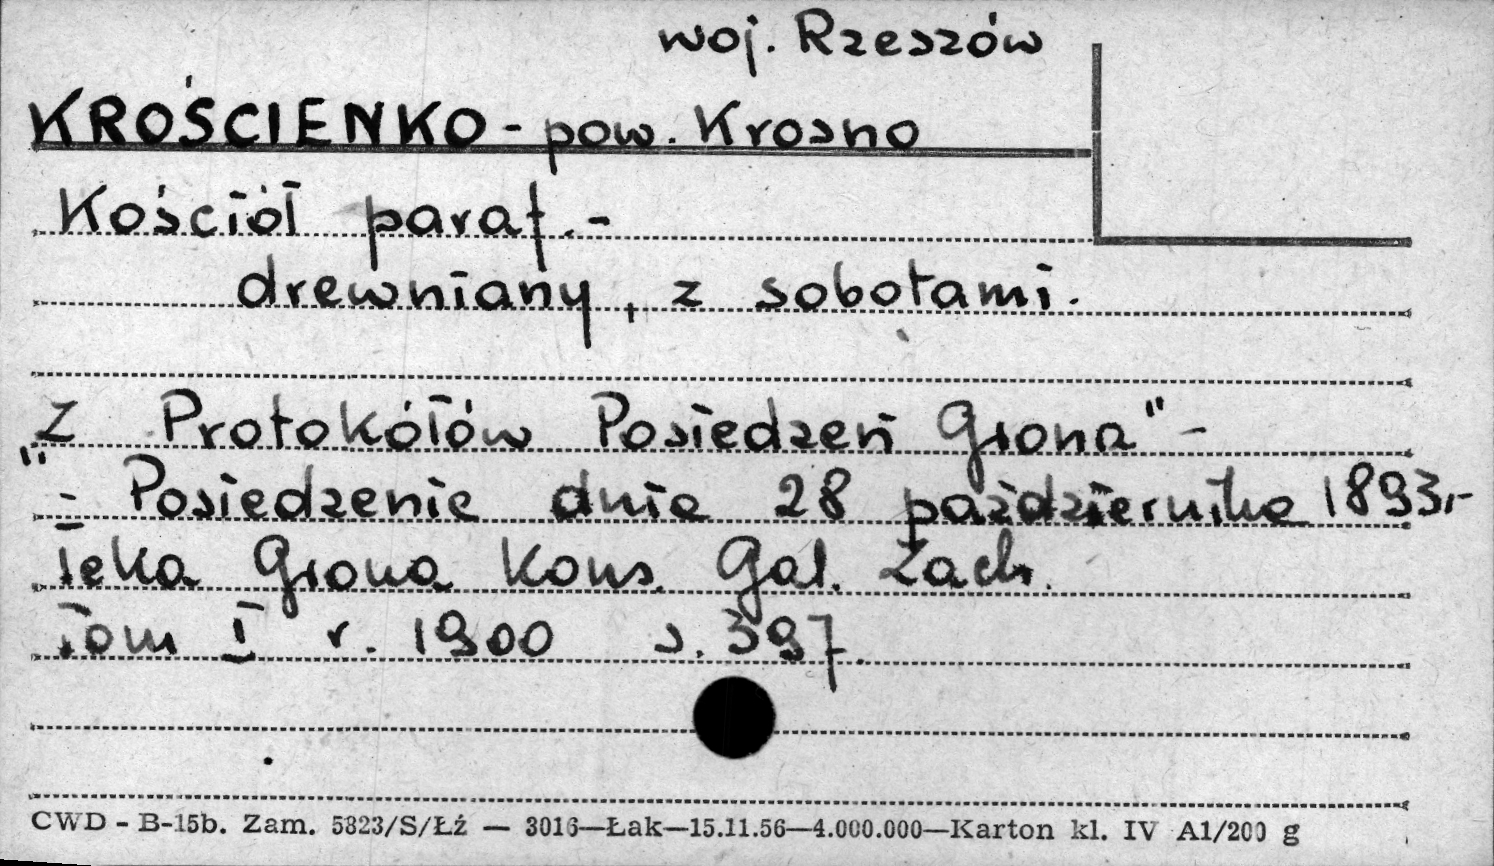 woj. Rzeszów
KROŚCIENKO - pow. Krosno
Kościół paraf. -
drewniany, z sobotami.
Z Protokółów Posiedzeń Grona" -
" - Posiedzenie dnia 28 października 1893,-
Teka Grona Kons. Gal. Zach.
Tom I r. 1900 s. 397.
CWD - B-15b. Zam. 5823/S/Łź — 3016—Łak—15.11.56—4.000.000—Karton kl. IV A1/200 g